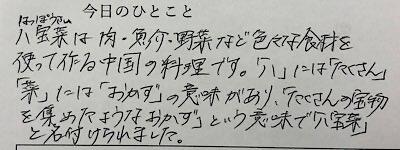 今日のひとこと
はっぽうさい
八宝菜は肉・魚介・野菜など色々な食材を
使って作る中国の料理です。「八」には「たくさん」
「菜」には「おかず」の意味があり、「たくさんの宝物
を集めたようなおかず」という意味で「八宝菜」
と名付けられました。